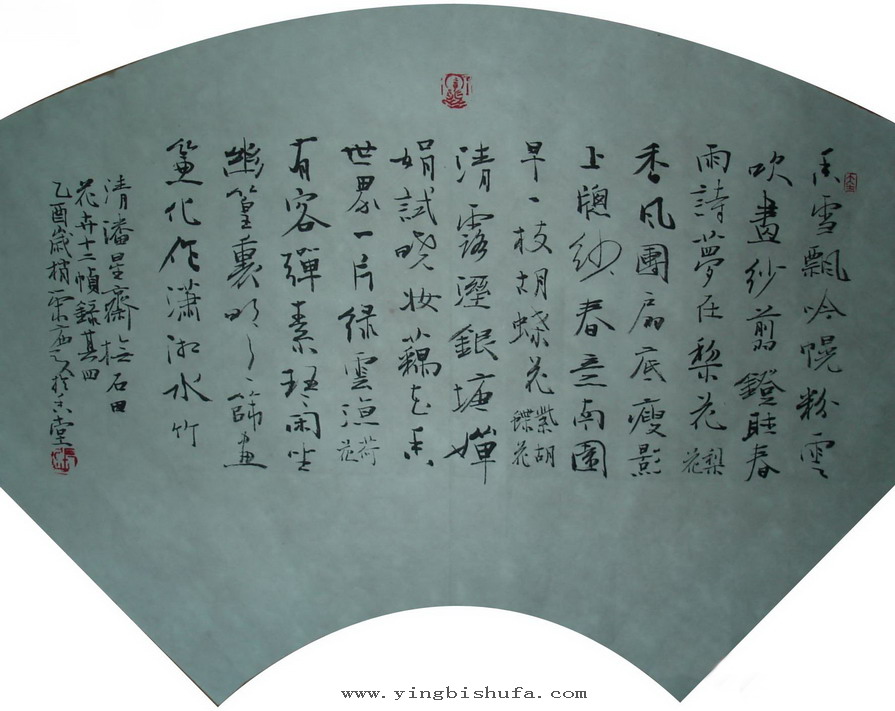 香雪飄吟幌粉雲
吹畫紗剪鐙聽春
雨詩夢在棃花
梨花
香風團扇底瘦影
上牕紗春去南園
早一枝胡蝶花
紫胡蝶花
清露溼銀塘嬋
娟試曉妝藕花香
世界一片绿雲涼
荷花
有客彈素琴閑坐
幽篁裏明明篩畫
簾化作瀟湘水竹
清潘星齋橅石田
花卉十二幀錄其四
乙酉歲梢
堂
www.yingbishufa.com